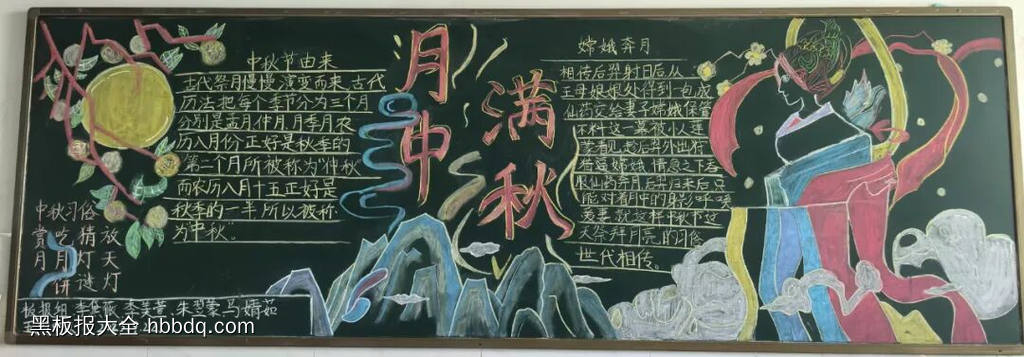 中秋节由来
古代祭月慢慢演变而来,古代
历法把每个季节分为三个月
分别是孟月仲月,月季月农
历八月份正好是秋季的
第二个月所被称为"仲秋
而农历八月十五正好是
秋季的一半所以被称
为中秋"。
月满
中秋
嫦娥奔月
相传后羿射日后从
王母娘娘处得到一包成
仙药交给妻子嫦娥保管
不料这一幕被小人蓬
蒙看见趁后羿外出将
嫦娥情急之下吞
仙药奔月后羿归来后只
能对着月中的身影呼唤
妻就这样中秋节这
天祭拜月亮的习俗
世代相传。
中秋习俗
赏月
吃月饼
猜灯谜
放天灯
板报组 朱翌蒙 马婧茹
黑板报大全 hbbdq.com